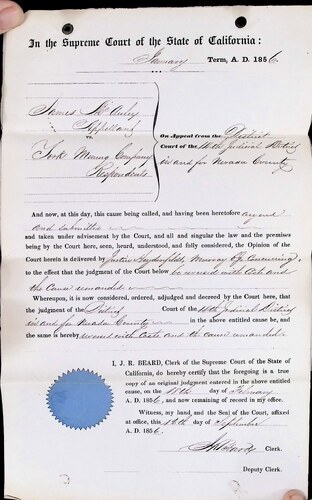 In the Supreme Court of the State of California:
January Term, A. D. 1856
James McCauley
Appellant
York Mining Company
Respondents
On Appeal from the District
Court of the 14th Judicial District
in and for Nevada County
And now, at this day, this cause being called, and having been heretofore argued
and submitted
and taken under advisement by the Court, and all and singular the law and the premises
being by the Court here, seen, heard, understood, and fully considered, the Opinion of the
Court herein is delivered by Justice Heydenfeldt, Murray CJ. Concurring
to the effect that the judgment of the Court below be reversed with Costs and
the Cause remanded
Whereupon, it is now considered, ordered, adjudged and decreed by the Court here, that
the judgment of the District Court of the 14th Judicial District
in and for Nevada County in the above entitled cause be, and
the same is hereby reversed with Costs and the cause remanded
I, J. R. BEARD, Clerk of the Supreme Court of the State of
California, do hereby certify that the foregoing is a true
copy of an original judgment entered in the above entitled
cause, on the day of February
A. D. 1856, and now remaining of record in my office.
Witness, my hand, and the Seal of the Court, affixed
at office, this 16th day of September
A. D. 1856.
Clerk.
Deputy Clerk.